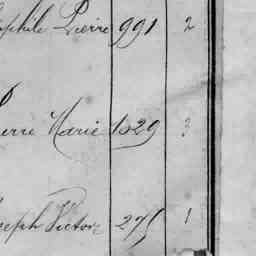 ophile Pierre 991 2
ierre Marie 1029 3
oseph Victor 275 1